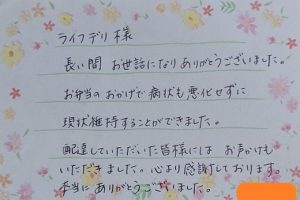 ライフデリ様
長い間 お世話になりありがとうございました。
お弁当のおかげで病状も悪化せずに
現状維持することができました。
配達していただいた皆様には お声かけも
いただきました。心より感謝しております。
本当に ありがとうございました。